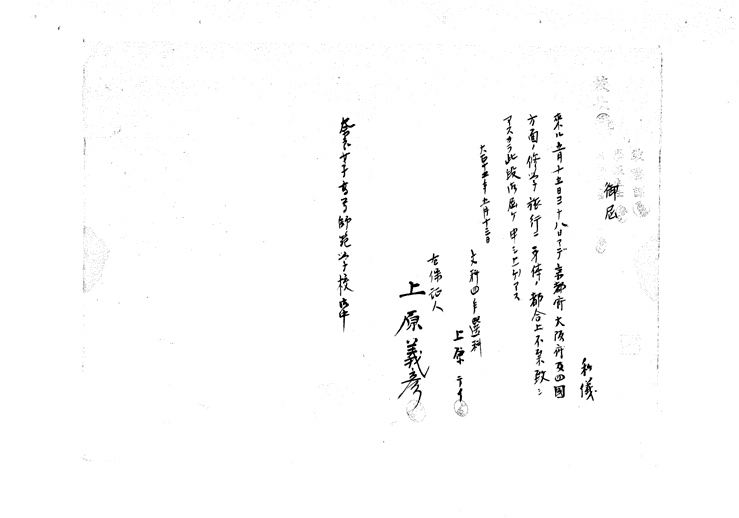 御届
私儀
来ル五月十五日ヨリ十八日マデ京都府大阪府及四国
方面ノ修学旅行ニ身体ノ都合上不参致シ
マスカラ此段御届ケ申シ上ゲマス
大正十五年五月十三日
文科四年選科
上原テイ
右保証人
上原義彦
奈良女子高等師範学校御中